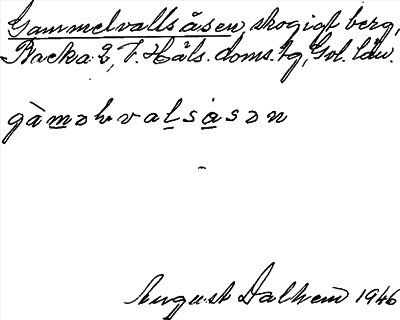 Gammelvallsåsen, skogigt berg,
Backa 2, V. Häls. doms. tg, Gvl. län.
gàməlvalsåsən
August Dalhem 1946